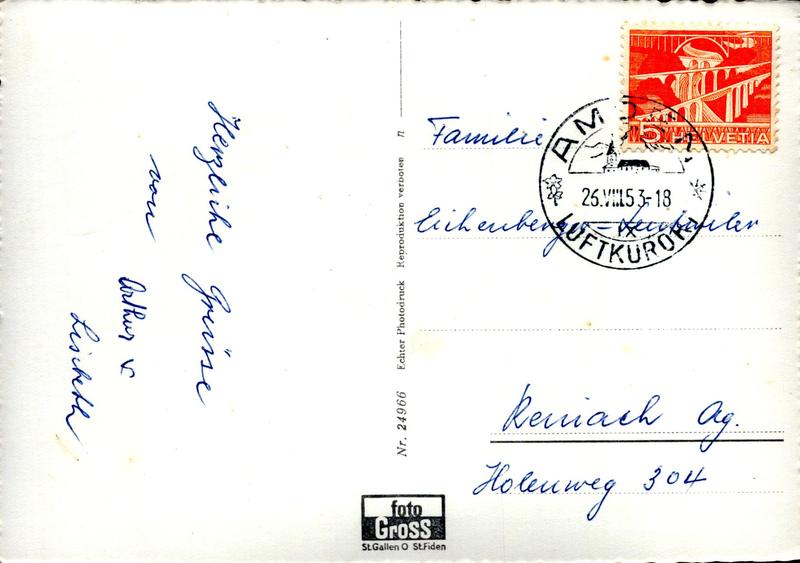 Herzliche Grüsse
von
Arthur &
Lisbeth
Nr. 24966 Echter Photodruck Reproduktion verboten n
foto
Gross
St.Gallen O St.Fiden
5 HELVETIA
26.VIII.53-18
IX
LUFTKURORT
Familie
Eichenberger-
Reinach Ag.
Holenweg 304